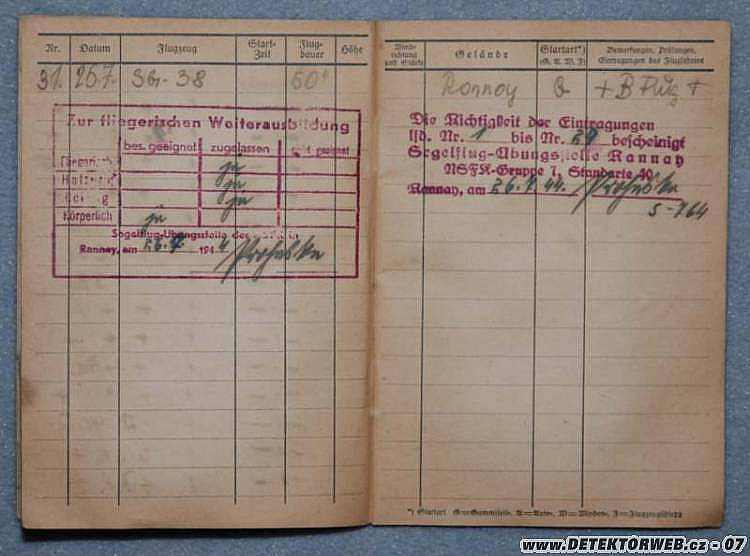 Nr. Datum Flugzeug Start-Zeit Flug-dauer Höhe
31. 26.7. SG-38 60"
Zur fliegerischen Weiterausbildung
bes. geeignet zugelassen nicht geeignet
Fliegerisch ja
Haltung ja
Geistig ja
Körperlich ja
Segelflug-Übungsstelle
Rannay, am 26.7. 1944
Wind-richtung und Stärke Gelände Startart*) (G. A. W. F.) Bemerkungen, Prüfungen, Eintragungen des Fluglehrers
Rannay G + B Flug +
Die Richtigkeit der Eintragungen
lfd. Nr. 1 bis Nr. 29 bescheinigt
Segelflug-Übungsstelle Rannay
NSFK-Gruppe 7, Standarte 40
Rannay, am 26.7.44.
*) Startart G=Gummiseil-, A=Auto-, W=Winden-, F=Flugzeugschlepp
www.DETEKTORWEB.cz - 07